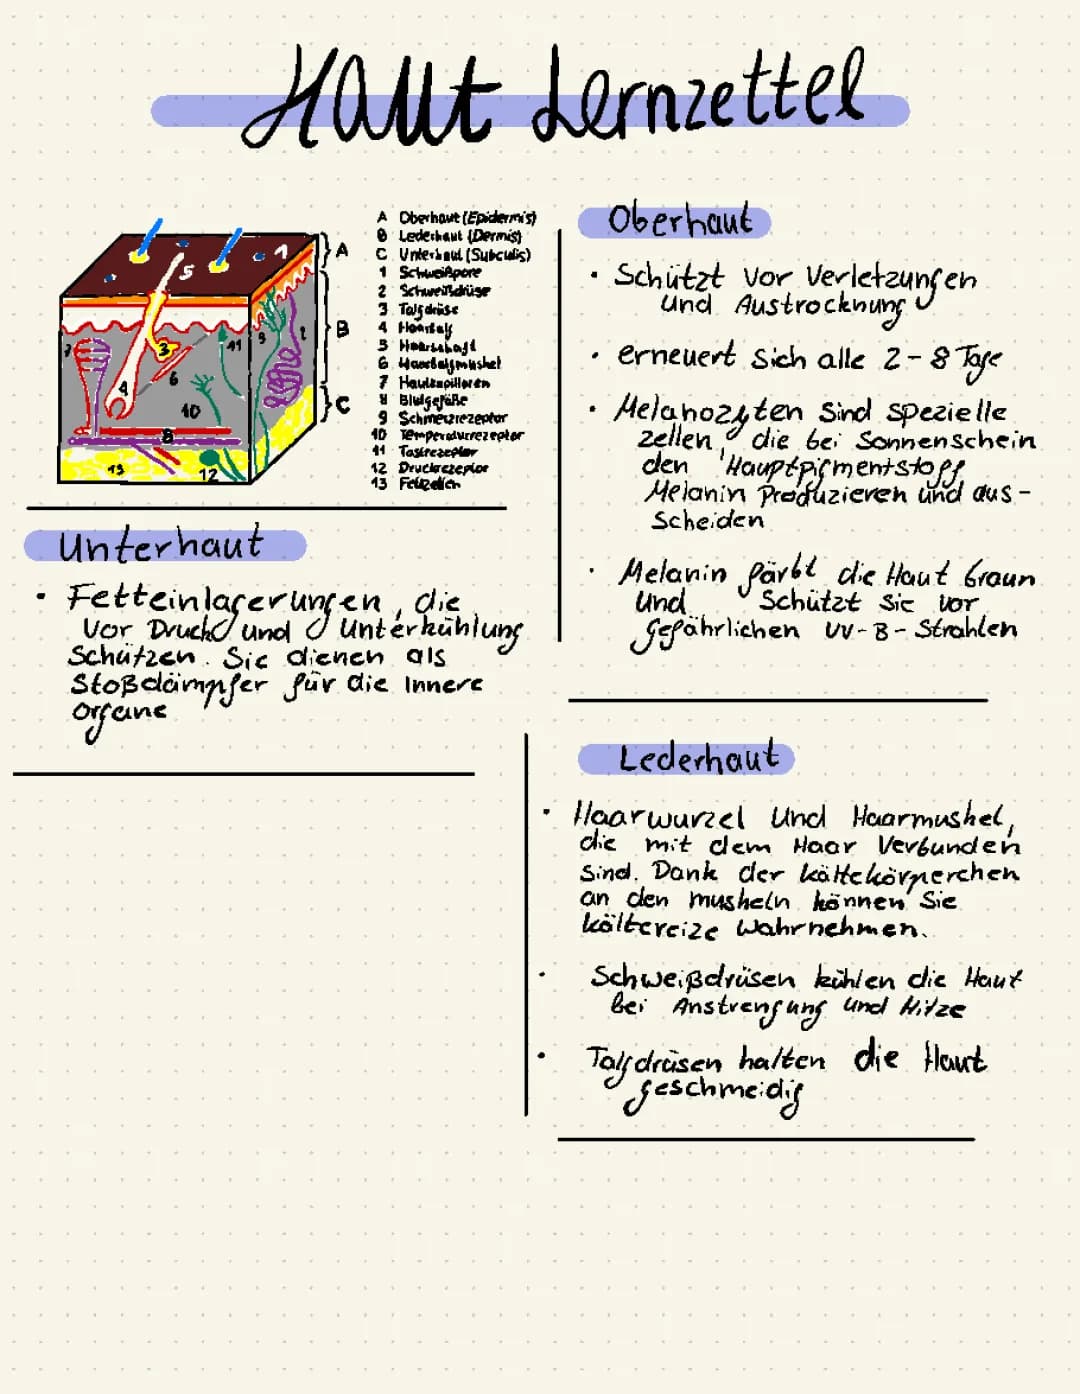 Haut Lernzettel
A Oberhaut (Epidermis)
B Lederhaut (Dermis)
C Unterhaut (Subcutis)
1 Schweißpore
2 Schweißdrüse
3 Talgdrüse
4 Haarbalg
5 Haarschaft
6 Haarbalgmuskel
7 Hautkapillaren
8 Blutgefäße
9 Schmerzrezeptor
10 Temperaturrezeptor
11 Tastrezeptor
12 Druckrezeptor
13 Fettzellen
A
B
C
1
5
3
7
11
9
2
6
4
10
8
13
12
Unterhaut
• Fetteinlagerungen, die
vor Druck und Unterkühlung
Schützen. Sie dienen als
Stoßdämpfer für die Innere
Organe
Oberhaut
• Schützt vor Verletzungen
und Austrocknung
• erneuert sich alle 2-8 Tage
• Melanozyten sind spezielle
zellen, die bei Sonnenschein
den Hauptpigmentstoff
Melanin Produzieren und aus-
Scheiden
• Melanin färbt die Haut braun
und Schützt sie vor
gefährlichen UV-B-Strahlen
Lederhaut
• Haarwurzel und Haarmuskel,
die mit dem Haar Verbunden
sind. Dank der kältekörperchen
an den muskeln können Sie
kältereize wahrnehmen.
• Schweißdrüsen kühlen die Haut
bei Anstrengung und Hitze
• Talgdrüsen halten die Haut
geschmeidig